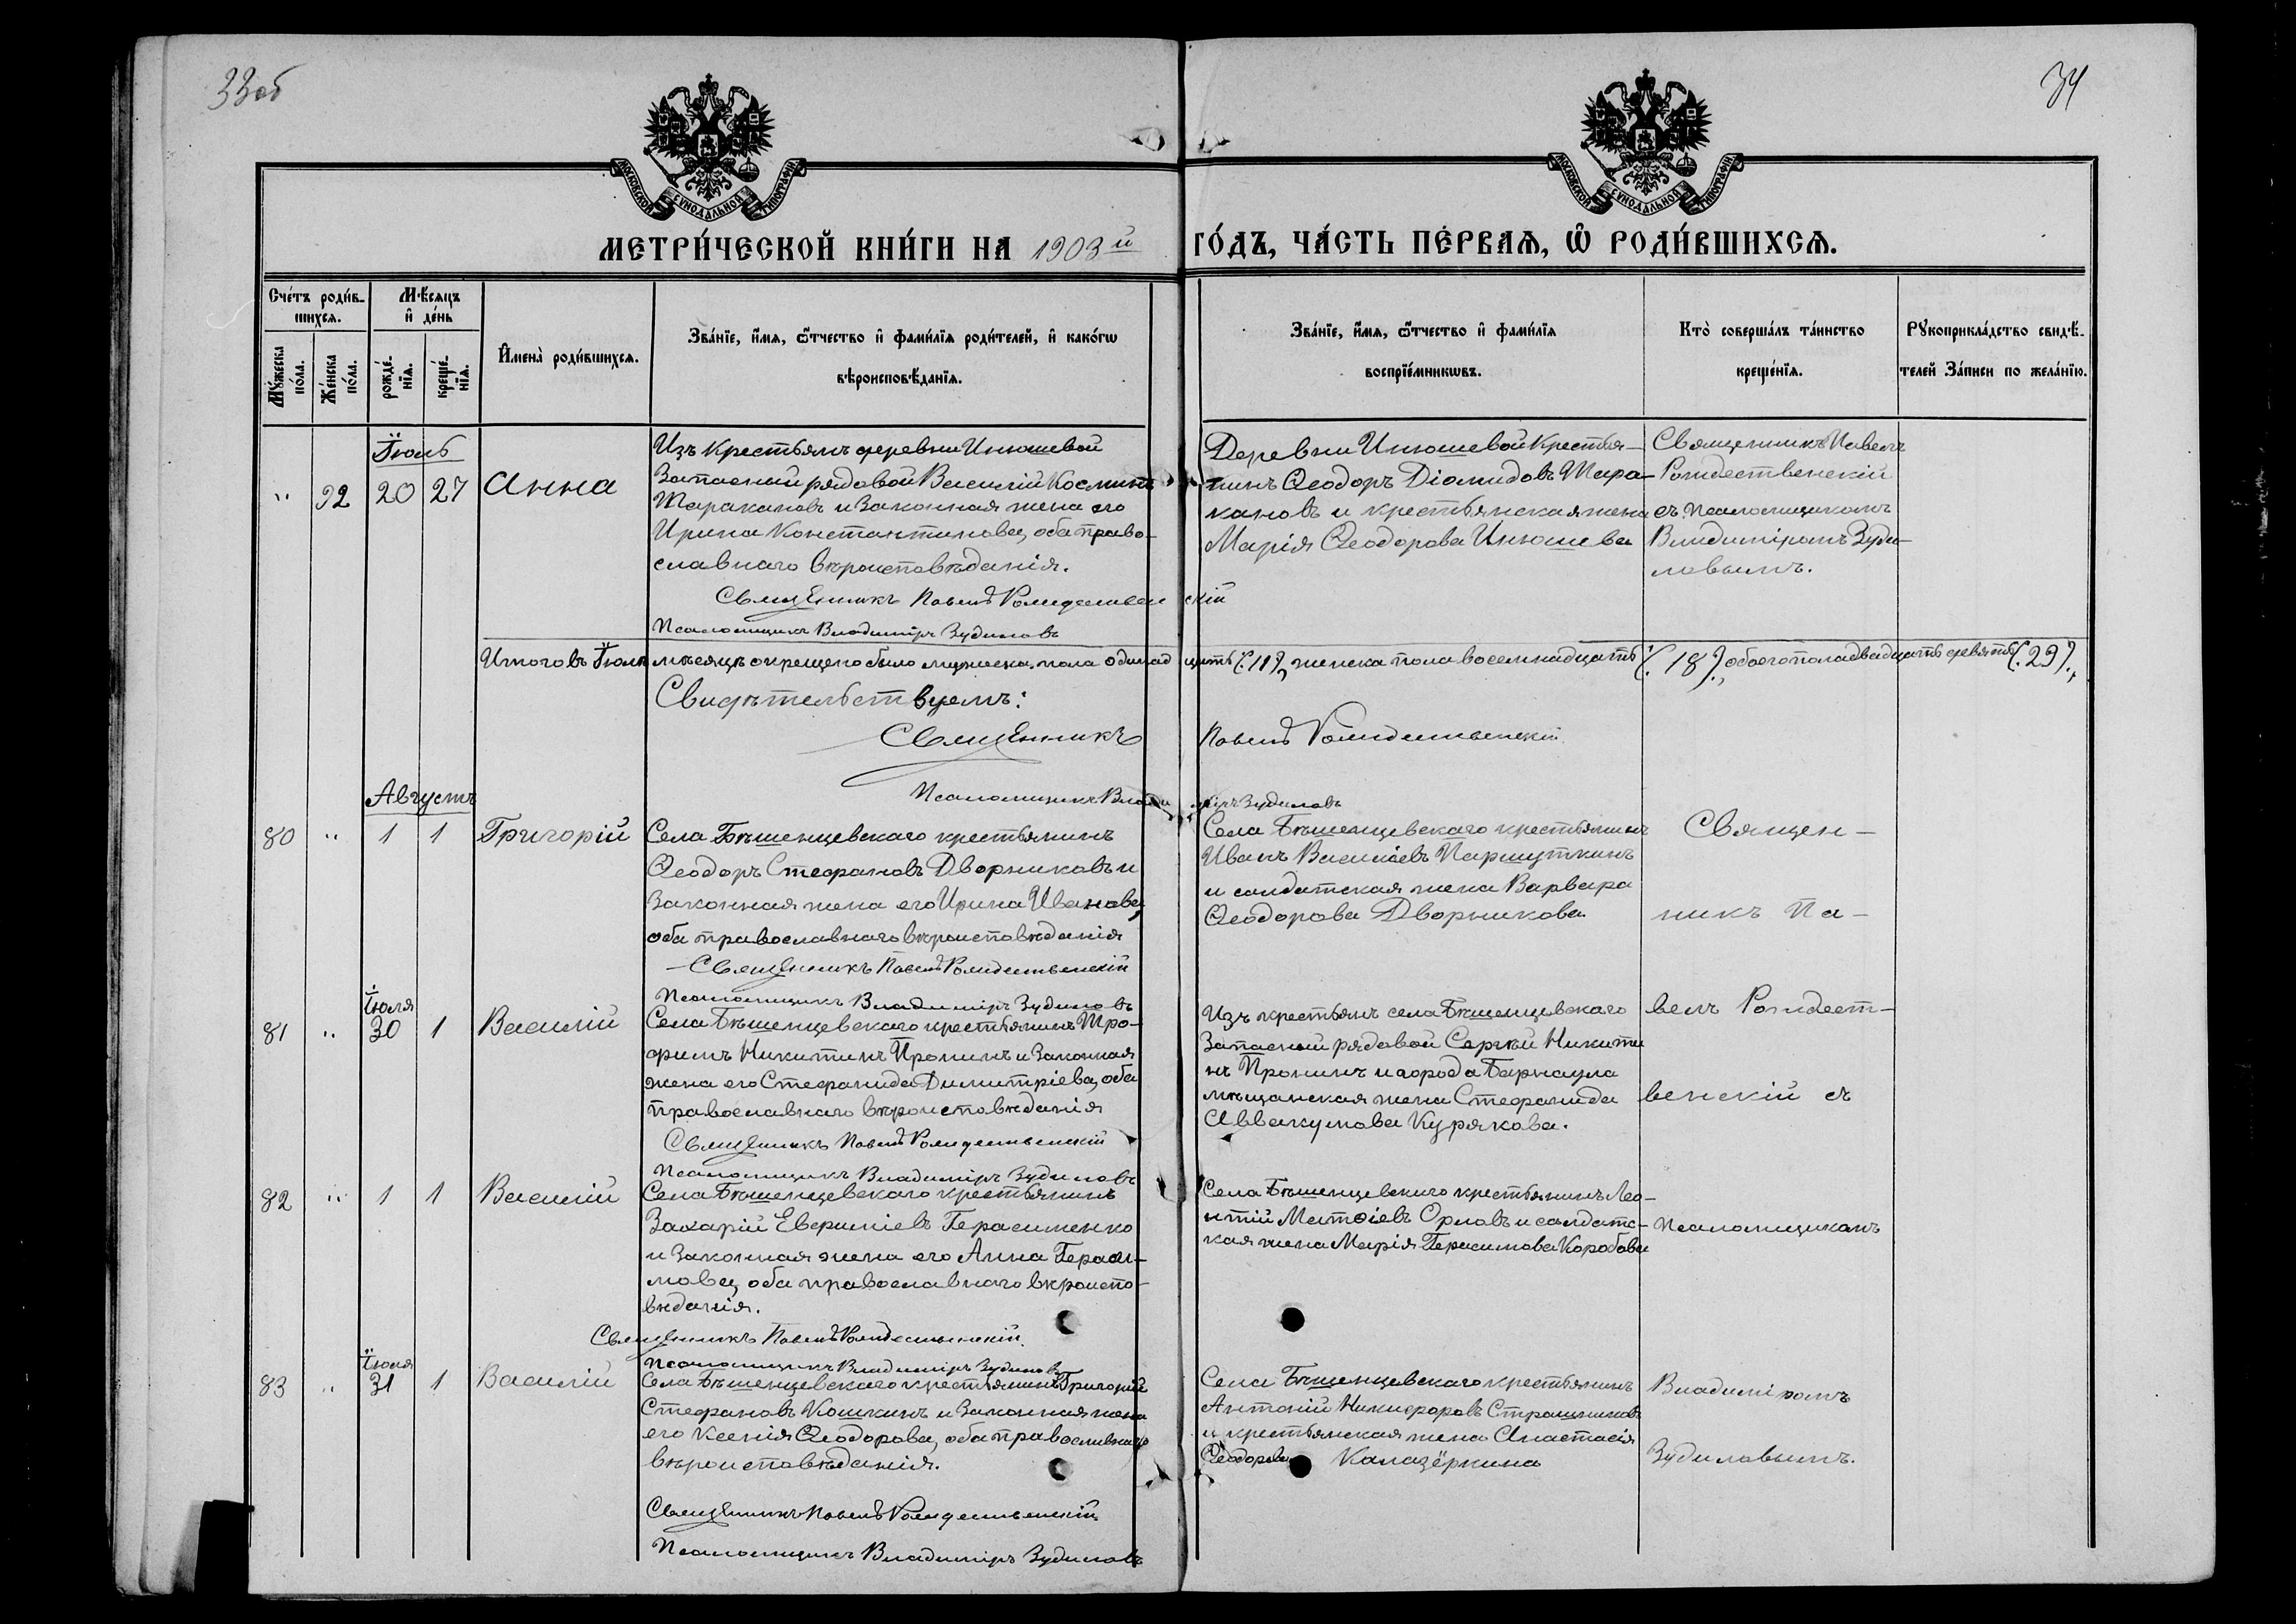 33об
34
МОСКОВСКОЙ СѴНОДАЛЬНОЙ ТИПОГРАФІИ
МОСКОВСКОЙ СѴНОДАЛЬНОЙ ТИПОГРАФІИ
МЕТРИ́ЧЕСКОЙ КНИ́ГИ НА 1903й ГО́ДЪ, ЧА́СТЬ ПЕ́РВАѦ, Ѽ РОДИ́ВШИХСѦ.
Сче́тъ роди́в-
шихсѧ.
Мѣ́сяцъ
и҆ де́нь
Мꙋ́жеска
по́ла.
Же́нска
по́ла.
рожде́-
нїѧ.
креще́-
нїѧ.
И҆мена̀ роди́вшихсѧ.
Зва́нїе, и҆́мѧ, ѻ҆́тчество и҆ фами́лїѧ роди́телей, и҆ како́гѡ
вѣроисповѣ́данїѧ.
Зва́нїе, и҆́мѧ, ѻ҆́тчество и҆ фами́лїѧ
воспрїе́мникѡвъ.
Кто̀ соверша́лъ та́инство
креще́нїѧ.
Рꙋкоприкла́дство свидѣ́-
телей За́писи по жела́нїю.
Іюль
" 92 20 27 Анна
Изъ крестьянъ деревни Инюшевой
Запасный рядовой Василій Косминъ
Таракановъ и Законная жена его
Ирина Константинова, оба право-
славнаго вѣроисповѣданія.
Священникъ Павелъ Рождественскій
Псаломщикъ Владиміръ Зудиловъ
Деревни Инюшевой Крестья-
нинъ Ѳеодоръ Діомидовъ Тара-
кановъ и крестьянская жена
Марія Ѳеодорова Инюшева
Священникъ Павелъ
Рождественскій
съ псаломщикомъ
Владиміромъ Зуди-
ловымъ.
Итого въ Іюлѣ мѣсяцѣ окрещено было мужеска пола одинадцать (11), женска пола восемнадцать (18), обоего пола двадцать девять (29).
Свидѣтельствуемъ:
Священникъ Павелъ Рождественскій
Псаломщикъ Владиміръ Зудиловъ
Августъ
80 " 1 1 Григорій
Села Бѣшенцевскаго крестьянинъ
Ѳеодоръ Стефановъ Дворниковъ и
Законная жена его Ирина Иванова,
оба православнаго вѣроисповѣданія
Священникъ Павелъ Рождественскій
Псаломщикъ Владиміръ Зудиловъ
Села Бѣшенцевскаго крестьянинъ
Иванъ Василіевъ Паршуткинъ
и солдатская жена Варвара
Ѳеодорова Дворникова.
Священ-
никъ Па-
Іюля
81 " 30 1 Василій
Села Бѣшенцевскаго крестьянинъ Тро-
фимъ Никитинъ Пронинъ и Законная
жена его Стефанида Димитріева, оба
православнаго вѣроисповѣданія
Священникъ Павелъ Рождественскій
Псаломщикъ Владиміръ Зудиловъ
Изъ крестьянъ села Бѣшенцевскаго
Запасный рядовой Сергѣй Никити
нъ Пронинъ и города Барнаула
мѣщанская жена Стефанида
Аввакумова Курякова.
велъ Рождест-
венскій съ
82 " 1 1 Василій
Села Бѣшенцевскаго крестьянинъ
Захарій Евфиміевъ Герасименко
и Законная жена его Анна Гераси-
мова, оба православнаго вѣроиспо-
вѣданія.
Священникъ Павелъ Рождественскій
Псаломщикъ Владиміръ Зудиловъ
Села Бѣшенцевскаго крестьянинъ Лео-
нтій Матѳіевъ Орловъ и солдатс-
кая жена Марія Герасимова Коробова
псаломщикомъ
Іюля
83 " 31 1 Василій
Села Бѣшенцевскаго крестьянинъ Григорій
Стефановъ Кошкинъ и Законная жена
его Ксенія Ѳеодорова, оба православнаго
вѣроисповѣданія.
Священникъ Павелъ Рождественскій
Псаломщикъ Владиміръ Зудиловъ
Села Бѣшенцевскаго крестьянинъ
Антоній Никифоровъ
и крестьянская жена Анастасія
Ѳеодорова Калазёркина
Владиміромъ
Зудиловымъ.